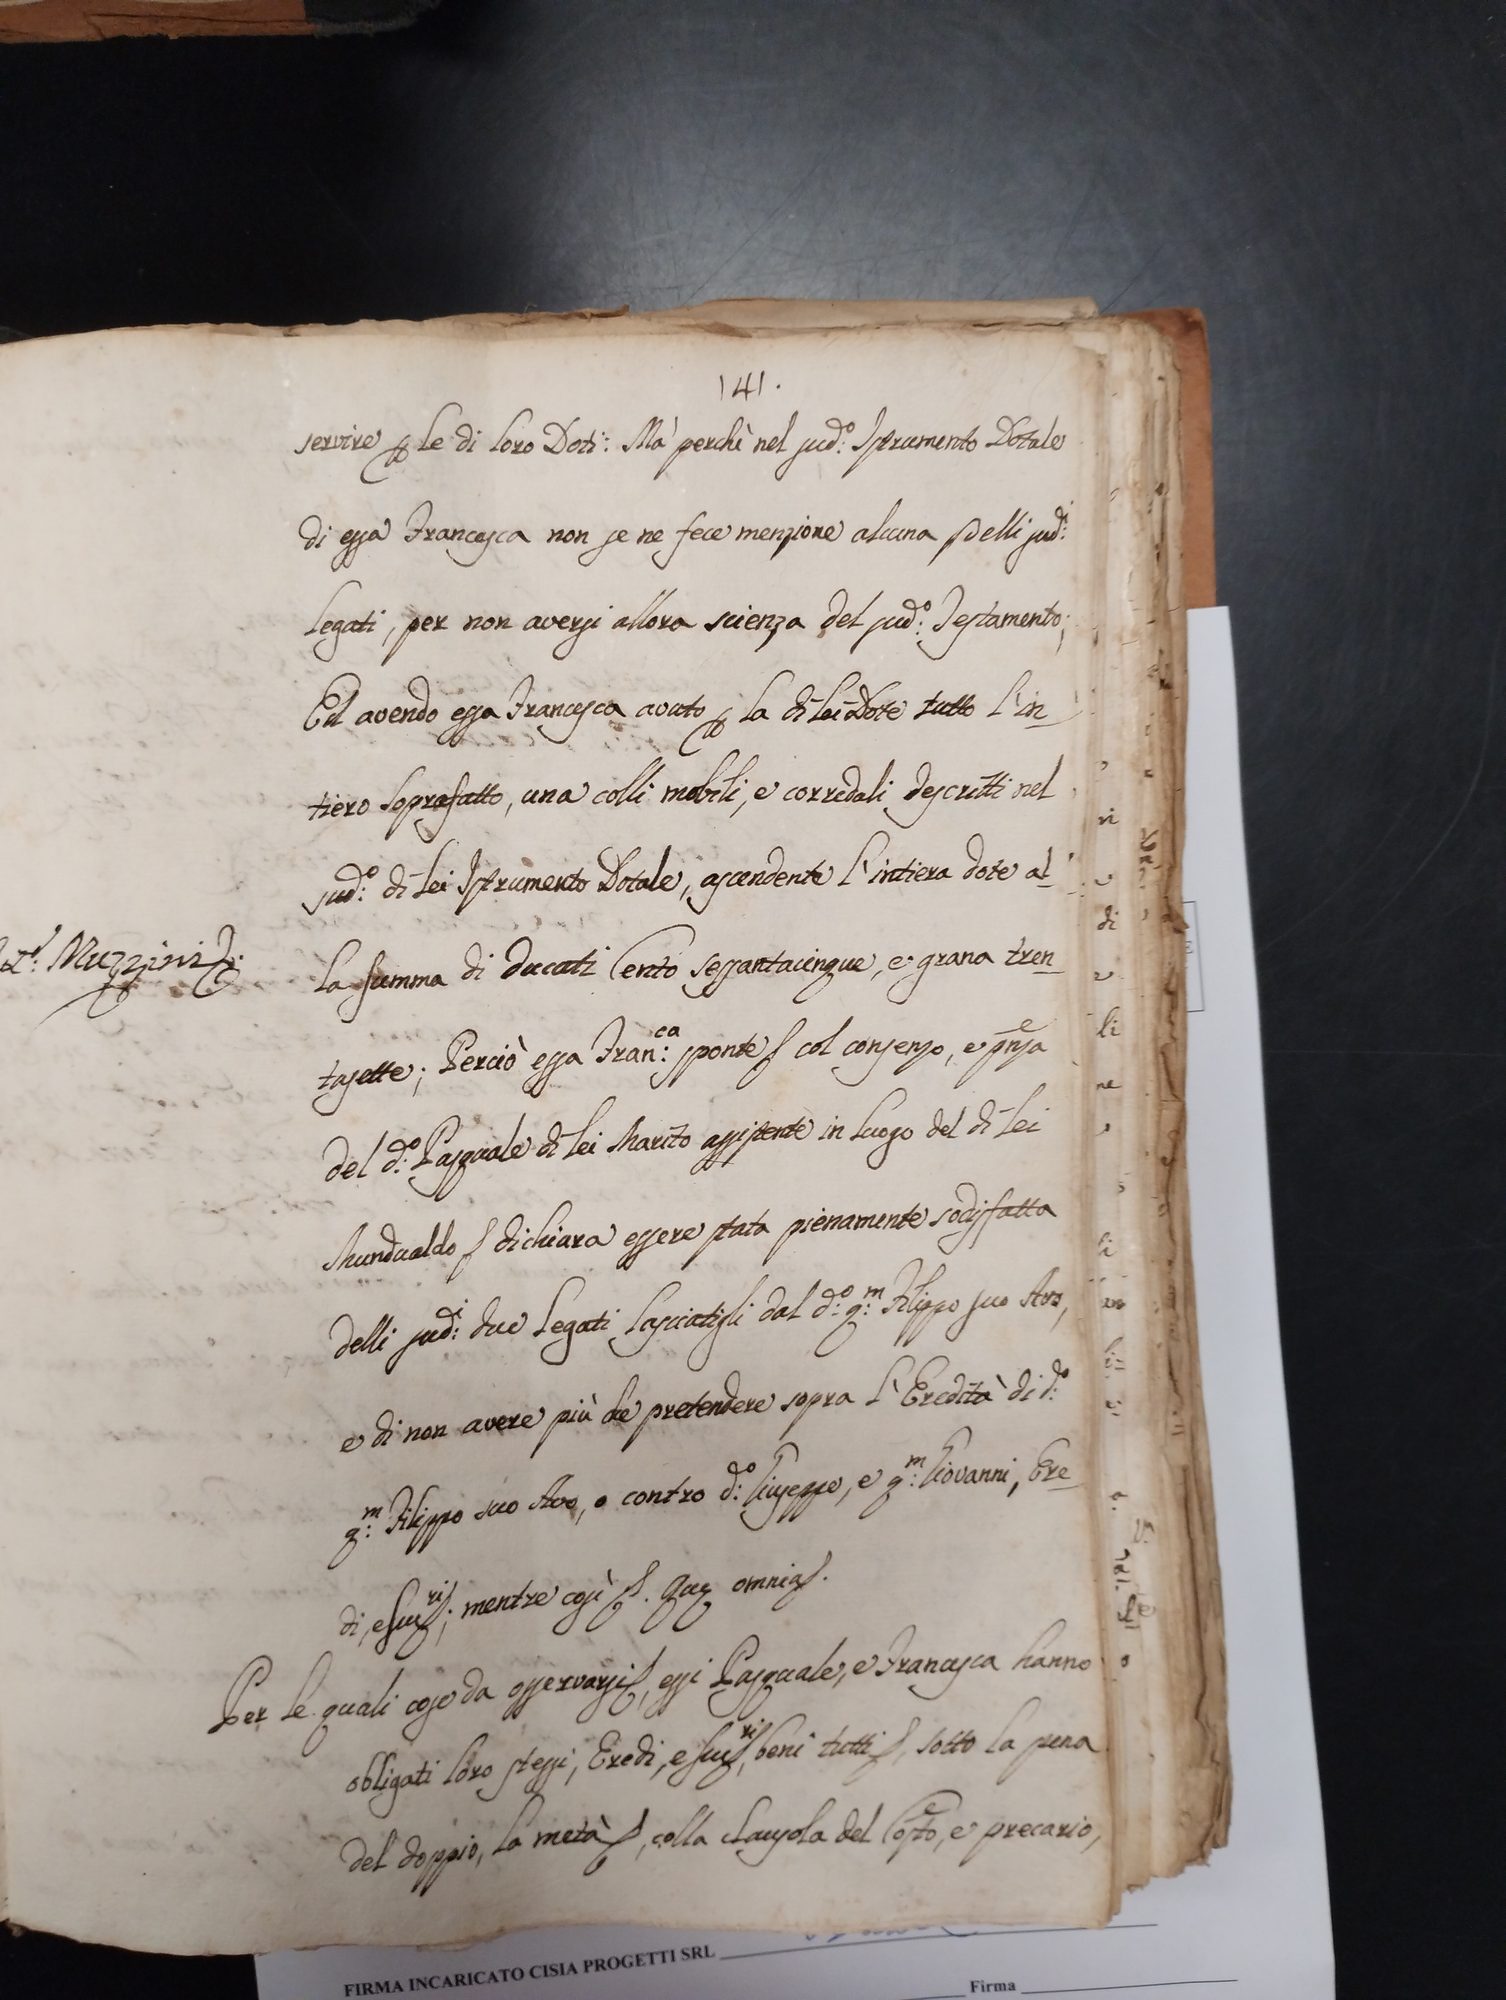 141.
servire per le di loro Doti: Mà perchè nel sud.o Istrumento Dotale
di essa Francesca non se ne fece menzione alcuna delli sud.i
Legati, per non aversi allora scienza del sud.o Testamento;
Ed avendo essa Francesca avuto per la di lei Dote tutto l'in-
tiero soprafatto, una colli mobili, e corredali descritti nel
sud.o di lei Istrumento Dotale, ascendente l'intiera dote al-
la summa di ducati Cento sessantacinque, e grana tren-
Muzzini
tasette; Perciò essa Fran.ca sponte col consenso, e pnsa
del d.o Pasquale di lei Marito assistente in luogo del di lei
Mundualdo dichiara essere stata pienamente sodisfatta
delli sud.i due Legati lasciatigli dal d.o q.m Filippo suo Avo,
e di non avere più che pretendere sopra l'Eredità di d.o
q.m Filippo suo Avo, o contro d.o Giuseppe, e q.m Giovanni, Ere-
di, e suc.ri; mentre così. Quae omnia.
Per le quali cose da osservarsi, essi Pasquale, e Francesca hanno
obligati loro stessi, Eredi, e suc.ri, beni tutti, sotto la pena
del doppio, la metà, colla clausola del Costo, e precario,
FIRMA INCARICATO CISIA PROGETTI SRL
Firma